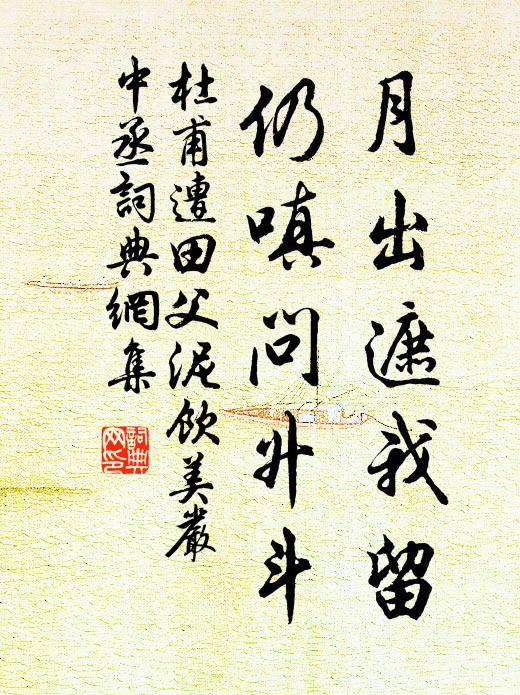 月出遮我留
仍嗔問升斗
杜甫遭田父泥飲美嚴
中丞詞典網集
詞典
网印